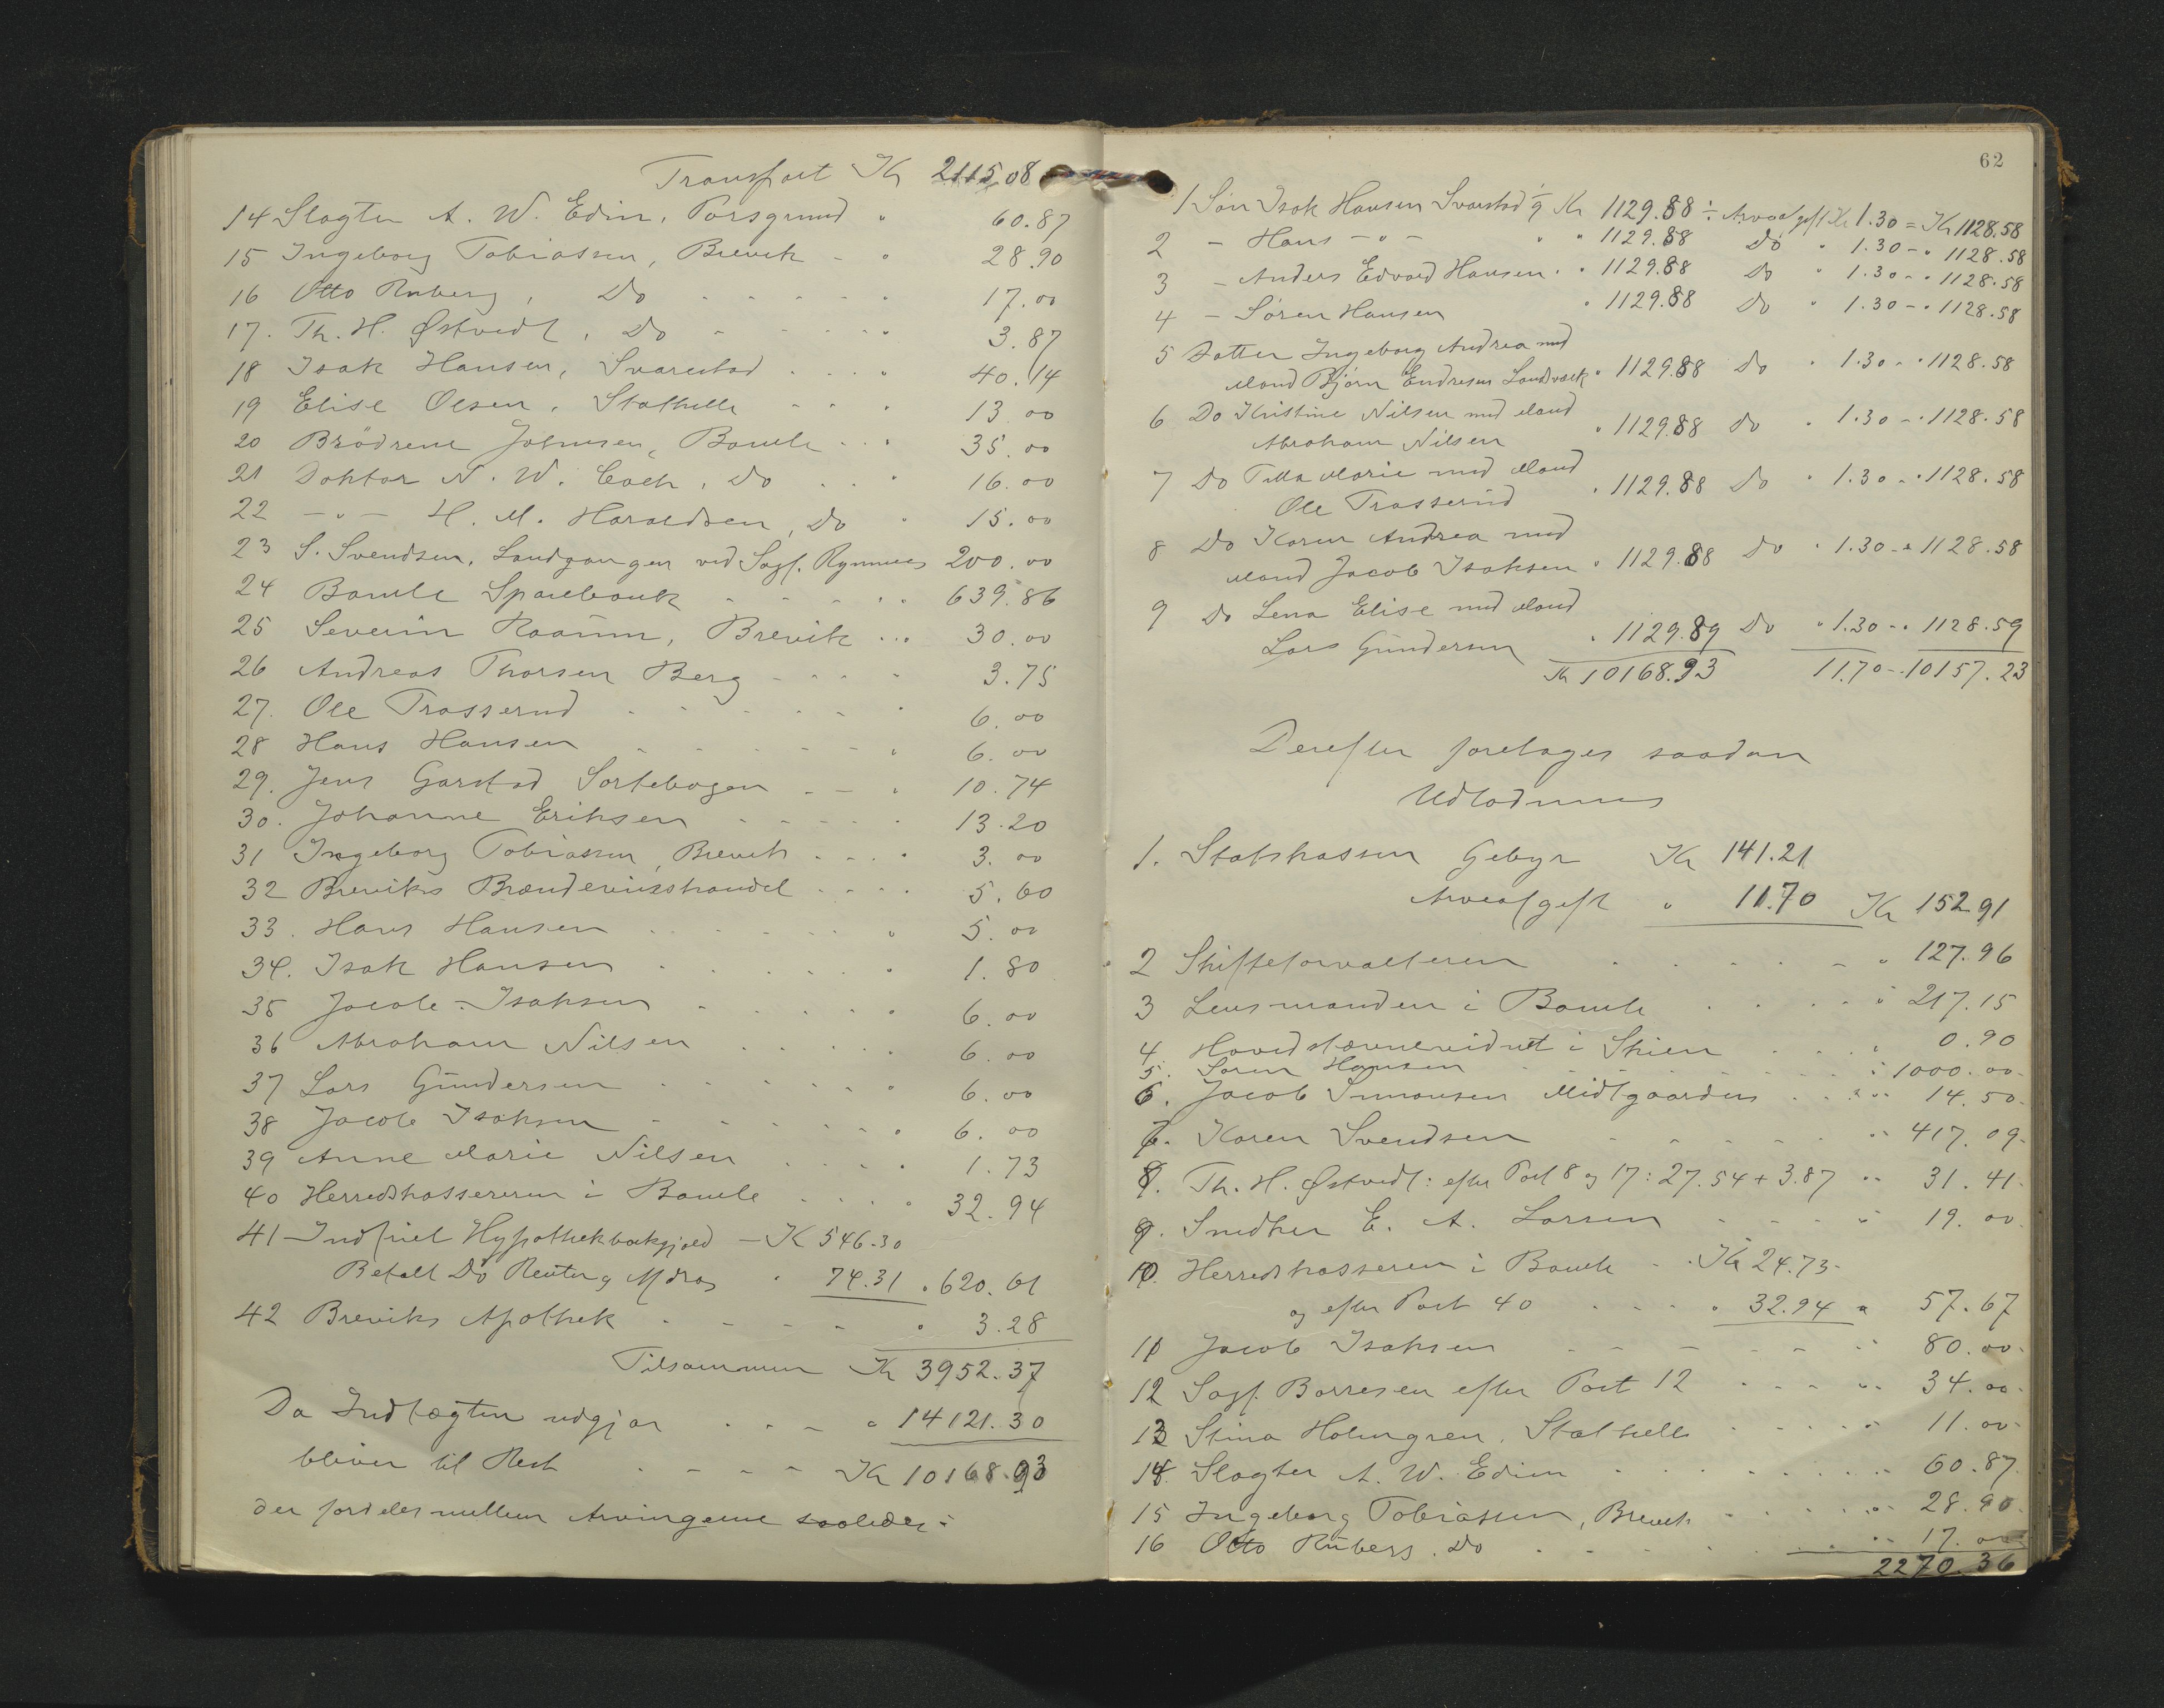 Transport Kr 2115.08
14 Slagter A. W. Edin, Porsgrund " 60.87
15 Ingeborg Tobiassen, Brevik - " 28.90
16 Otto Ruberg, Do - - - - " 17.00
17. Th. H. Østvedt, Do - - - - " 3.87
18 Isak Hansen, Svarstad . . . " 40.14
19 Elise Olsen, Stathelle - - " 13.00
20 Brødrene Johnsen, Bamle . . " 35.00
21 Doktor N. W. Coch, Do . . " 16.00
22 - " - H. M. Haraldsen, Do " 15.00
23 S. Svendsen, Landgangen ved Sagf. Rynning 200.00
24 Bamle Sparebank - - - - " 639.86
25 Severin Raaum, Brevik . . " 30.00
26 Andreas Thorsen Berg - - - - 3.75
27. Ole Trosserud - - - - " 6.00
28 Hans Hansen - - - - " 6.00
29. Jens Garstad Sortebogen - - " 10.74
30. Johanne Eriksen - - - - 13.20
31 Ingeborg Tobiassen, Brevik . . . " 3.00
32 Breviks Brændevinshandel . . . . 5.60
33. Hans Hansen . . . . " 5.00
34. Isak Hansen . . . . " 1.80
35 Jacob Isaksen - . . . " 6.00
36 Abraham Nilsen . . . . 6.00
37 Lars Gundersen . . . . " 6.00
38 Jacob Isaksen - - - - " 6.00
39 Anne Marie Nilsen . . . . 1.73
40 Herredskassereren i Bamle . . . " 32.94
41 - Indfriet Hypothekbankgjæld - K 546.30
Betalt Do Renter og Afdrag " 74.31 " 620.61
42 Breviks Apothek - - - - " 3.28
Tilsammen Kr 3952.37
Da Indtægten udgjør . . - - " 14121.30
bliver til Rest . - - - Kr 10168.93
der fordeles mellem Arvingerne saaledes:
62
1 Søn Isak Hansen Svarstad 1/9 Kr 1129.88 ÷ Arveafgift Kr 1.30 = Kr 1128.58
2 - Hans - " - " " 1129.88 Do " 1.30 - " 1128.58
3 - Anders Edvard Hansen " " 1129.88 Do " 1.30 - " 1128.58
4 - Søren Hansen " 1129.88 Do " 1.30 - " 1128.58
5 Datter Ingeborg Andrea med
Mand Bjørn Endresen Landvæk " 1129.88 Do " 1.30 - " 1128.58
6 Do Kristine Nilsen med Mand
Abraham Nilsen " 1129.88 Do " 1.30 - " 1128.58
7 Do Tilla Marie med Mand
Ole Trosserud " 1129.88 Do " 1.30 - " 1128.58
8 Do Karen Andrea med
Mand Jacob Isaksen " 1129.88 Do " 1.30 - " 1128.58
9 Do Lena Elise med Mand
Lars Gundersen " 1129.89 Do " 1.30 - " 1128.59
Kr 10168.93 11.70 - 10157.23
Derefter foretages saadan
Udlodning
1. Statskassen Gebyr Kr 141.21
Arveafgift " 11.70 Kr 152.91
2 Skifteforvalteren . . . . - " 127.96
3 Lensmanden i Bamle . . . - " 217.15
4. Hovedstævnevidnet i Skien . . . " 0.90
5. Søren Hansen - - - - " 1000.00
6. Jacob Simonsen Midtgaarden . . " 14.50
7. Karen Svendsen - - - - " 417.09
8. Th. H. Østvedt: efter Post 8 og 17: 27.54 + 3.87 " 31.41
9. Snedker E. A. Larsen - - - " 19.00
10. Herredskasseren i Bamle - Kr 24.73
og efter Post 40 . . . . " 32.94 " 57.67
11 Jacob Isaksen - - - - " 80.00
12 Sagf. Borresen efter Post 12 . . . " 34.00
13 Stina Holmgren, Stathelle . . . . " 11.00
14. Slagter A. W. Edin . . . . " 60.87
15 Ingeborg Tobiassen, Brevik . . . . " 28.90
16 Otto Ruberg. Do . . . . " 17.00
2270.36